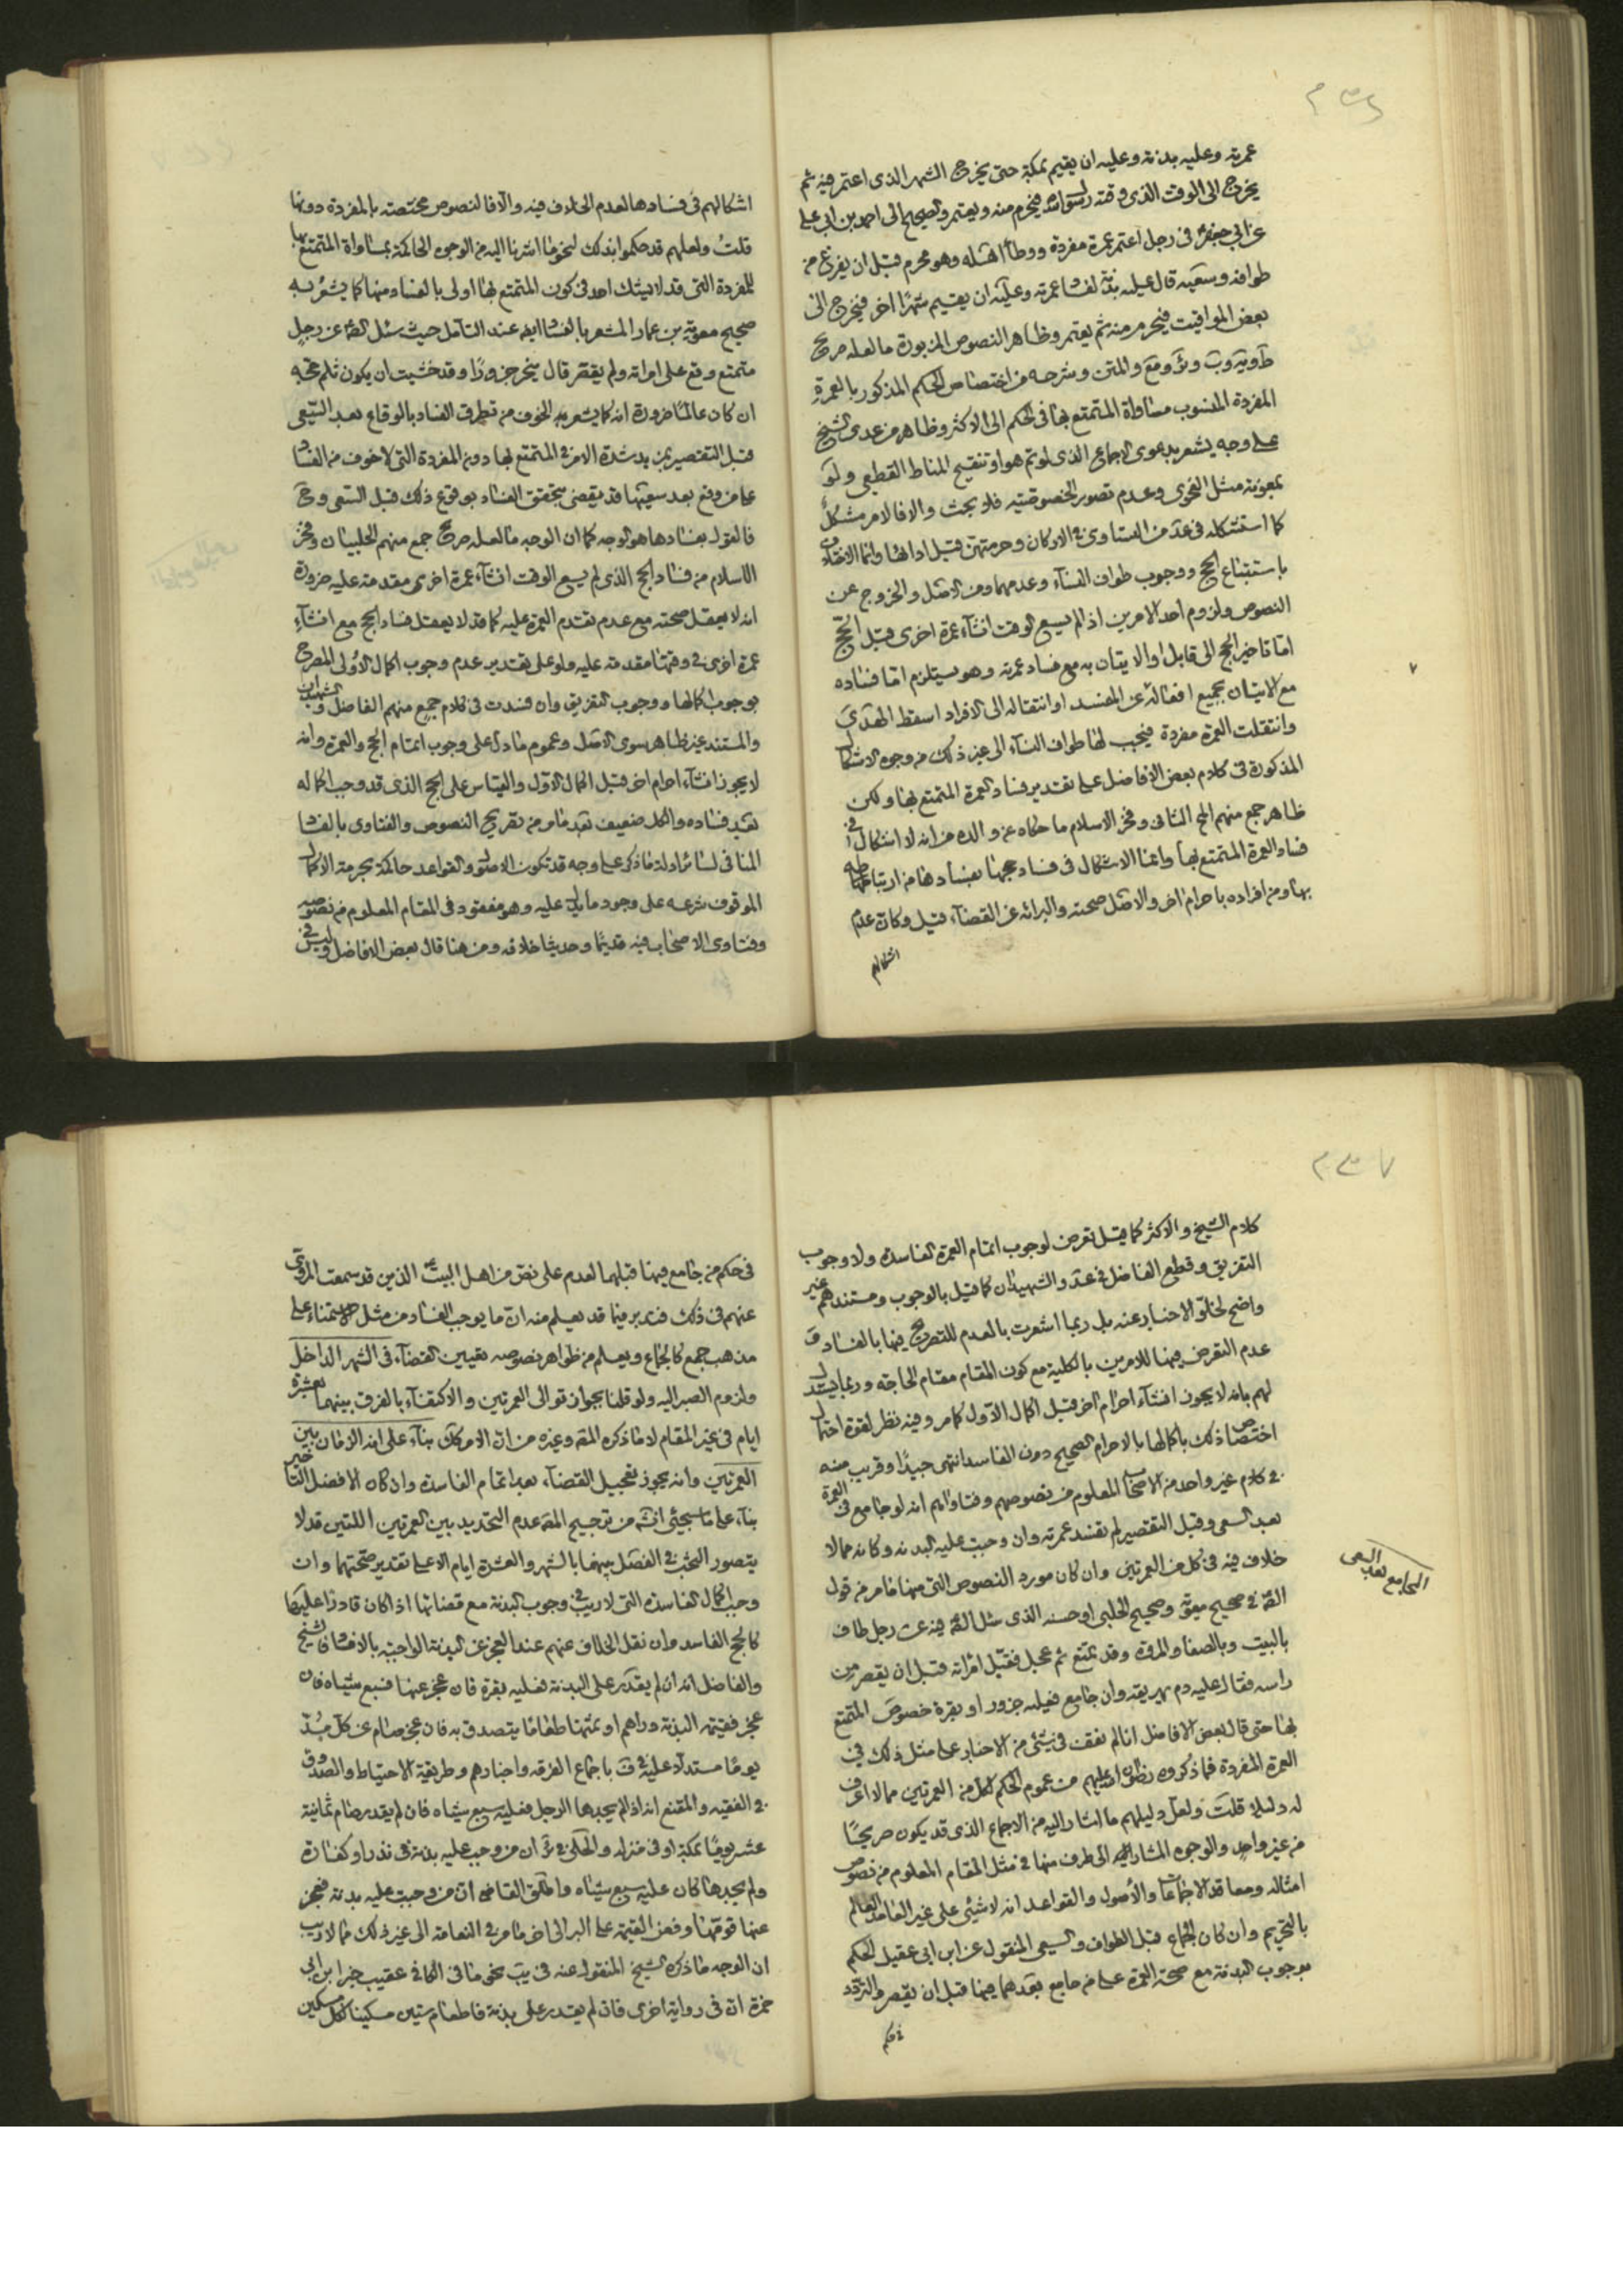 عمرته وعليه بدنة وعليه ان يقيم بمكة حتى يخرج الشهر الذى اعتمر فيه ثم
يخرج الى الوقت الذى وقته رسول الله فيحرم منه ويعتمر والصحيح الى احمد بن ابى على
عن ابى جعفر فى رجل اعتمر عمرة مفردة ووطأ اهله وهو محرم قبل ان يفرغ من
طوافه وسعيه قال عليه بدنة لفساد عمرته وعليه ان يقيم شهرًا اخر فيخرج الى
بعض المواقيت فيحرم منه ثم يعتمر وظاهر النصوص المزبورة مالعله صريح
والمتن وشرحه من اختصاص الحكم المذكور بالعمرة
المفردة المنسوب مساواة المتمتع بها فى الحكم الى الاكثر وظاهر من عدى الشيخ
على وجه يشعر بدعوى الاجماع الذى لوتم هو او تنقيح المناط القطعى ولو
بمعونة مثل الفحوى وعدم تصور الخصوصية فلا بحث والا فالامر مشكل
كما استشكله فى عد من التساوى فى الاركان وحرمتهن قبل ادائها وانما الاختلاف
باستتباع الحج ووجوب طواف النساء وعدمهما ومن الاصل والخروج عن
النصوص ولزوم احد الامرين اذا لم يسع الوقت انشاء عمرة اخرى قبل الحج
اما تاخير الحج الى قابل او الاتيان به مع فساد عمرته وهو يستلزم اما فساده
مع الاتيان بجميع افعاله عن المفسد او انتقاله الى الافراد اسقط الهدى
وانتقلت العمرة مفردة فيجب لها طواف النساء الى غير ذلك من وجوه الاشكال
المذكورة فى كلام بعض الافاضل على تقدير فساد العمرة المتمتع بها ولكن
ظاهر جمع منهم المح الثانى وفخر الاسلام ما حكاه عن والده من انه لا اشكال فى
فساد العمرة المتمتع بها وانما الاشكال فى فساد حجها بفسادها من ارتباطه
بها ومن افراده باحرام اخر والاصل صحته والبرائة عن القضاء قيل وكان عدم
اشكالهم
اشكالهم فى فسادها لعدم الخلاف فيه والا فالنصوص مختصة بالمفردة دونها
قلت ولعلهم قد حكموا بذلك لنحو ما اشرنا اليه من الوجوه الحاكمة بمساواة المتمتع بها
للمفردة التى قد لا يشك احد فى كون المتمتع بها اولى بالفساد منها كما يشعر به
صحيح معوية بن عمار المشعر بالفساد ايضا عند التأمل حيث سئل الصم عن رجل
متمتع وقع على امراته ولم يقصر قال ينحر جزورًا وقد خشيت ان يكون ثلم حجه
ان كان عالمًا ضرورة انه كما يشعر به الخوف من تطرق الفساد بالوقاع بعد السعى
قبل التقصير بمزيد شدة الامر فى المتمتع بها دون المفردة التى لا خوف من الفساد
عمن وقع بعد سعيها قد يقضى بتحقق الفساد بوقوع ذلك قبل السعى وح
فالقول بفسادها هو الوجه كما ان الوجه مالعله صريح جمع منهم الحلبيان وفخر
الاسلام من فساد الحج الذى لم يسع الوقت انشاء عمرة اخرى مقدمة عليه ضرورة
انه لا يعقل صحته مع عدم تقدم العمرة عليه كما قد لا يعقل فساد الحج مع انشاء
عمرة اخرى فى وقتها مقدمة عليه ولو على تقدير عدم وجوب اكمال الاولى المصرح
بوجوب اكمالها ووجوب التفريق وان فسدت فى كلام جمع منهم الفاضل والشهيدان
والمستند غير ظاهر سوى الاصل وعموم مادل على وجوب اتمام الحج والعمرة وانه
لا يجوز انشاء احرام اخر قبل اكمال الاول والقياس على الحج الذى قد وجب اكماله
بعد فساده والكل ضعيف بعد ما مر من تصريح النصوص والفتاوى بالفساد
المنافى لسائر ادلة ما ذكر على وجه قد تكون الاصول والقواعد حاكمة بحرمة الاكمال
الموقوف شرعه على وجود ما يدل عليه وهو مفقود فى المقام المعلوم من نصوصه
وفتاوى الاصحاب فيه قديمًا وحديثا خلافه ومن هنا قال بعض الافاضل وليس فى
كلام الشيخ والاكثر كما قيل تعرض لوجوب اتمام العمرة الفاسدة ولا وجوب
التفريق وقطع الفاضل فى عد والشهيدان كما قيل بالوجوب ومستندهم غير
واضح لخلو الاخبار عنه بل ربما اشعرت بالعدم للتصريح فيها بالفساد و
عدم التعرض فيها للامرين بالكلية مع كون المقام مقام الحاجة وربما يستدل
لهم بانه لا يجوز انشاء احرام اخر قبل اكمال الاول كما مر وفيه نظر لقوة احتمال
اختصاص ذلك باكمالها بالاحرام الصحيح دون الفاسد انتهى جيدًا وقريب منه
فى كلام غير واحد من الاصحاب المعلوم من نصوصهم وفتاواهم انه لو جامع فى العمرة
بعد السعى وقبل التقصير لم تفسد عمرته وان وجب عليه البدنة وكانه مما لا
خلاف فيه فى كل من العمرتين وان كان مورد النصوص التى منها ما مر من قول
الصم فى صحيح معوية وصحيح الحلبى او حسنه الذى سئل الصم فيه عن رجل طاف
بالبيت وبالصفا والمروة وقد تمتع ثم عجل فقبل امراته قبل ان يقصر من
راسه فقال عليه دم يهريقه وان جامع فعليه جزور او بقرة خصوص المتمتع
بها حتى قال بعض الافاضل انا لم نقف فى شئ من الاخبار على مثل ذلك فى
العمرة المفردة فما ذكروه رضوان الله عليهم من عموم الحكم لكل من العمرتين مما لا اعرف
له دليلا قلت ولعل دليلهم ما اشار اليه من الاجماع الذى قد يكون صريحًا
من غير واحد والوجوه المشار اليها الى طرف منها فى مثل المقام المعلوم من نصوص
امثاله ومعاقد الاجماعات والأصول والقواعد انه لا شئ على غير العامد العالم
بالتحريم وان كان الجماع قبل الطواف والسعى المنقول عن ابن ابى عقيل الحكم
بوجوب البدنة مع صحة العمرة على من جامع بعدهما فيها قبل ان يقصر والتردد
فى حكم
الجامع بعد السعى
فى حكم من جامع فيها قبلهما لعدم على نص من اهل البيت الذين قد سمعت المروى
عنهم فى ذلك فتدبر فيما قد يعلم منه ان ما يوجب الفساد من مثل الاستمناء على
مذهب جمع كالجماع ويعلم من ظواهر نصوصه تعيين القضاء فى الشهر الداخل
ولزوم الصبر اليه ولو قلنا بجواز توالى العمرتين والاكتفاء بالفرق بينهما بعشرة
ايام فى غير المقام لا ما ذكره المص وغيره من ان الامر كان بناء على انه الزمان بين
العمرتين وانه يجوز تعجيل القضاء بعد اتمام الفاسدة وان كان الافضل التاخير
بناء على ما سيجئ انش من ترجيح المص عدم التحديد بين العمرتين اللتين قد لا
يتصور البحث فى الفصل بينهما بالشهر والعشرة ايام الا على تقدير صحتهما وان
وجب اكمال الفاسدة التى لا ريب فى وجوب البدنة مع قضائها اذا كان قادرًا عليها
كالحج الفاسد وان نقل الخلاف عنهم عند العجز عن البدنة الواجبة بالافساد فالشيخ
والفاضل انه ان لم يقدر على البدنة فعليه بقرة فان عجز عنها فسبع شياه فان
عجز فقيمة البدنة دراهم او ثمنها طعامًا يتصدق به فان عجز صام عن كل مد
يومًا مستدلا عليه فى ف باجماع الفرقة واخبارهم وطريقة الاحتياط والصدوق
فى الفقيه والمقنع انه اذا لم يجدها الرجل فعليه سبع شياه فان لم يقدر صام ثمانية
عشر يومًا بمكة او فى منزله والحلى فى ئر ان من وجب عليه بدنة فى نذر او كفارة
ولم يجدها كان عليه سبع شياه واطلق القاضى ان من وجبت عليه بدنة فعجز
عنها قومها وفض القيمة على البر الى اخر ما مر فى النعامة الى غير ذلك مما لا ريب
ان الوجه ما ذكره الشيخ المنقول عنه فى يب نحو ما فى الكافى عقيب خبر ابن ابى
حمزة ان فى رواية اخرى فان لم يقدر على بدنة فاطعام ستين مسكينا لكل مسكين